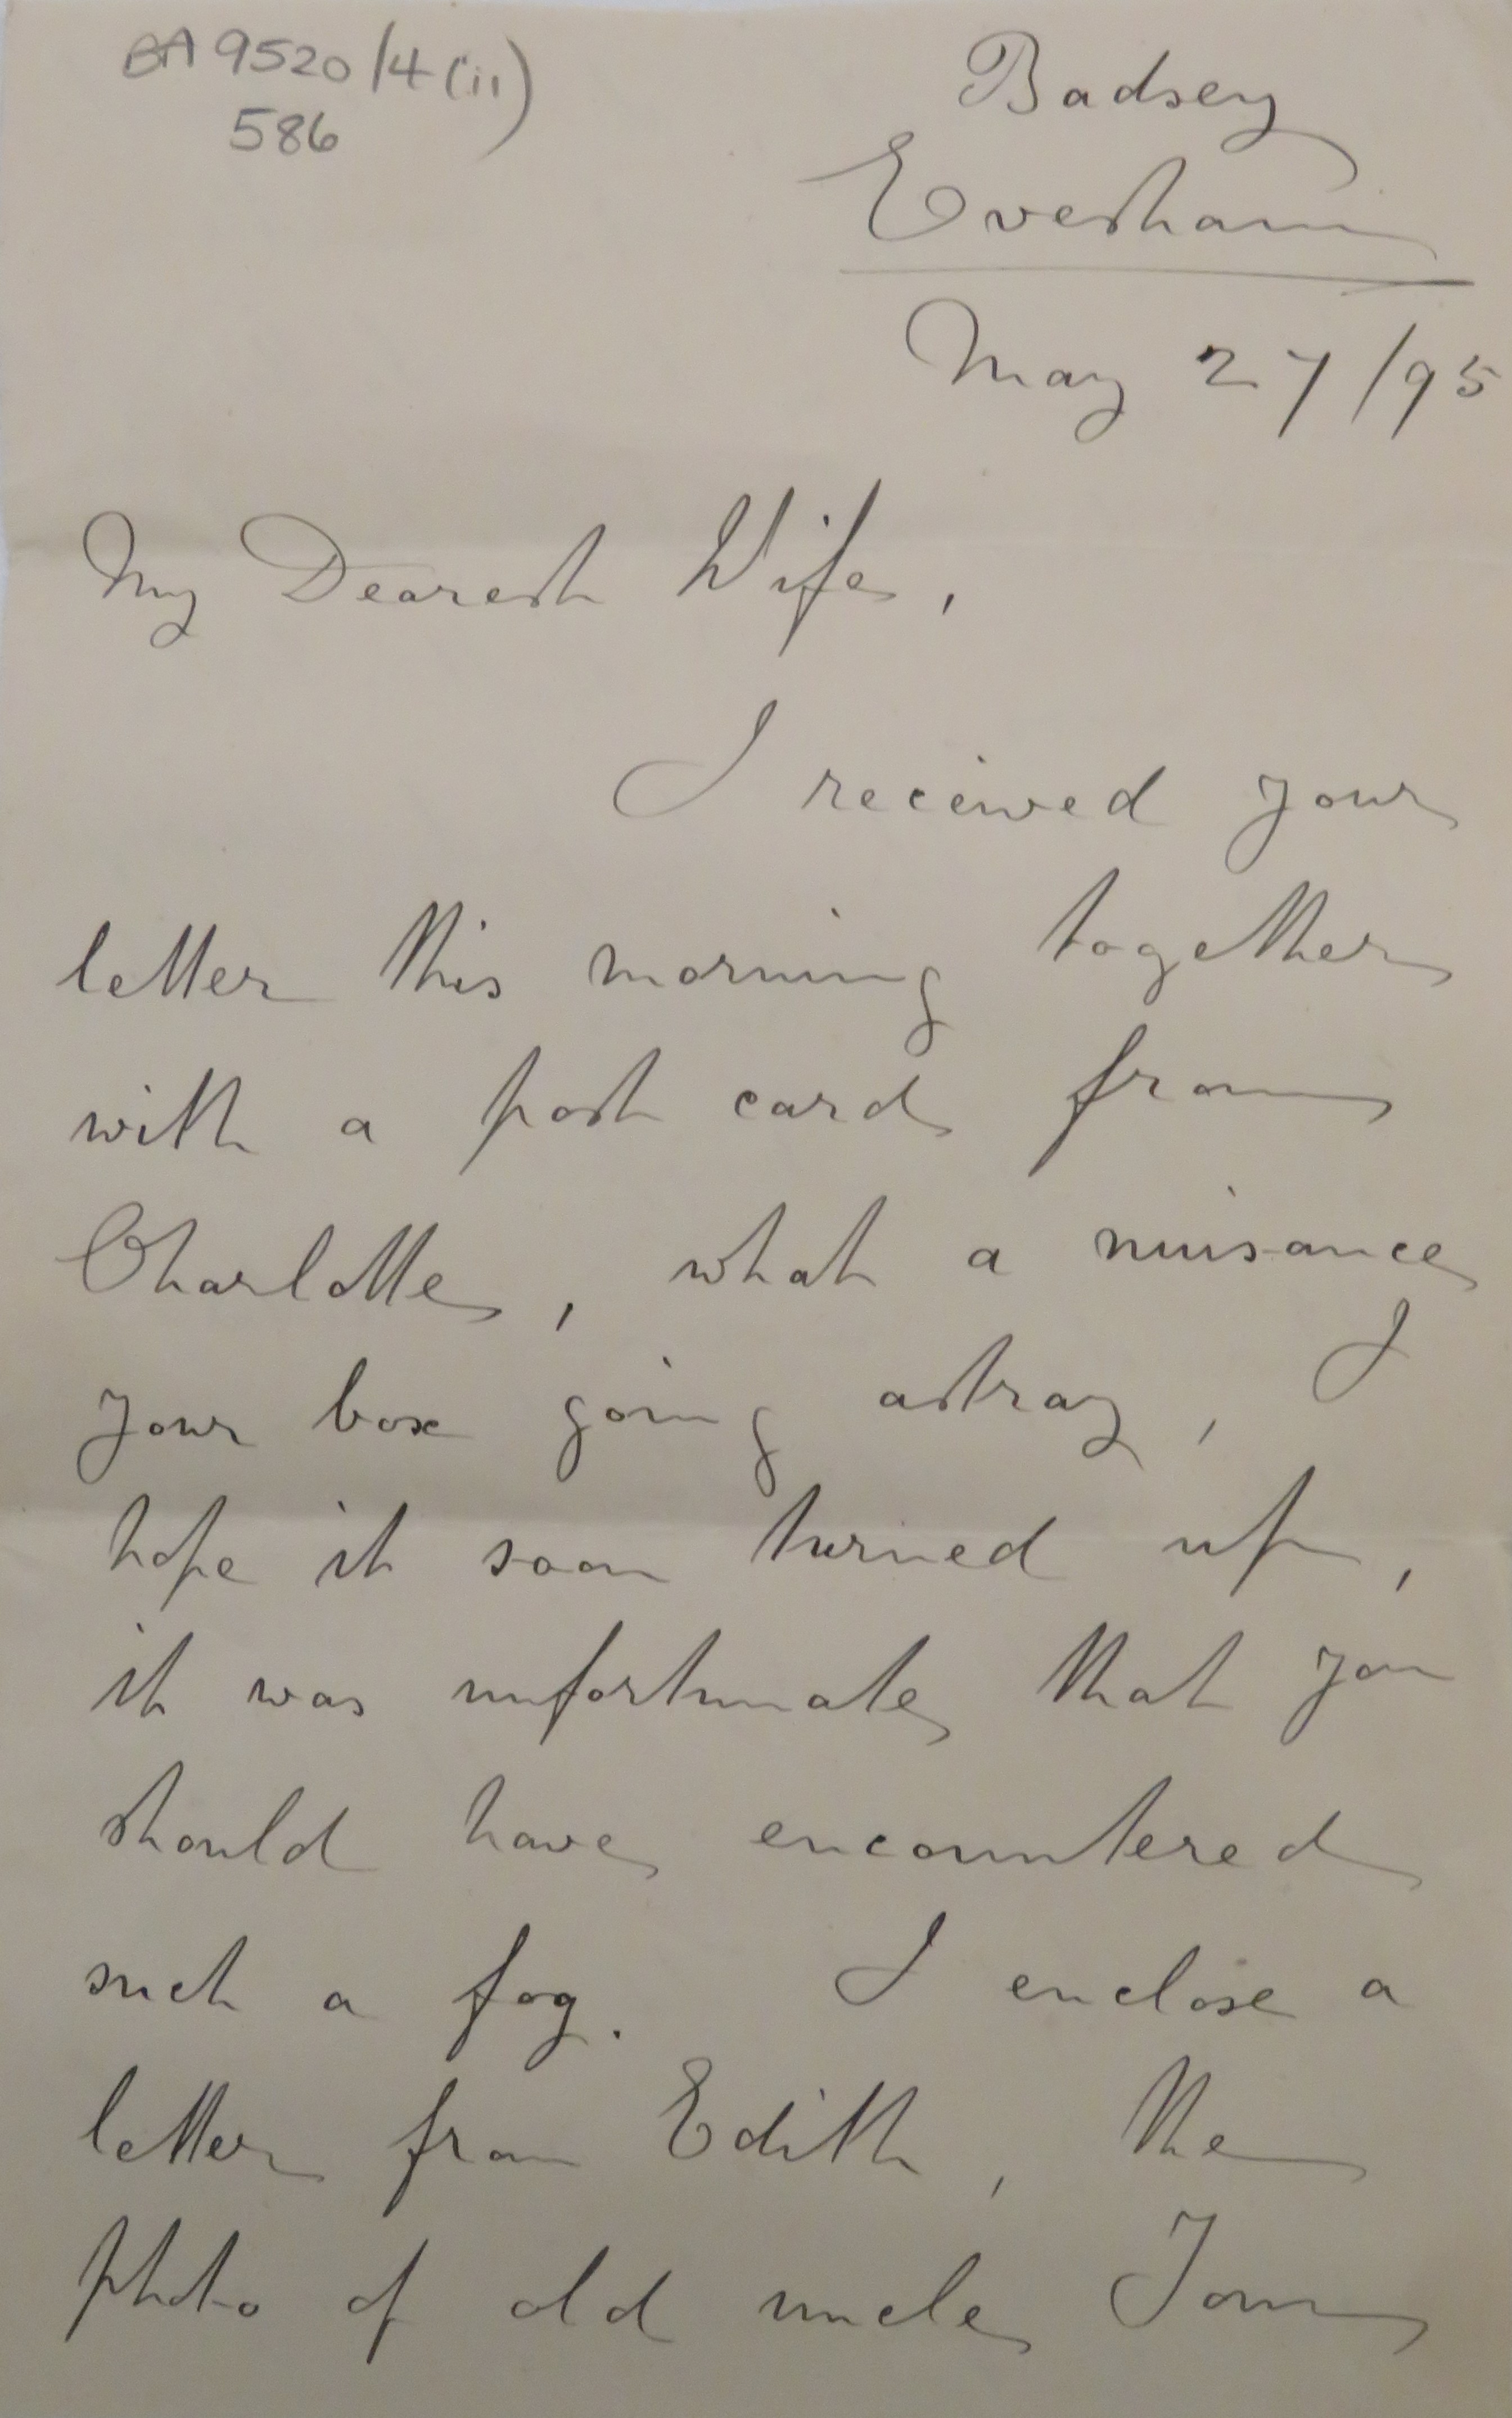 BA 9520/4(ii)
586
Badsey
Evesham
May 27/95
My Dearest Wife,
I received your
letter this morning together
with a post card from
Charlotte, what a nuisance
your box going astray, I
hope it soon turned up,
it was unfortunate that you
should have encountered
such a fog. I enclose a
letter from Edith, the
photo of old uncle Tom